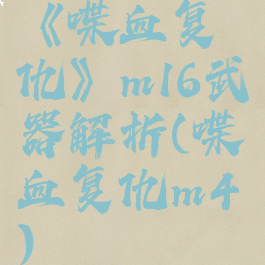 《喋血复
仇》m16武
器解析(喋
血复仇m4
)